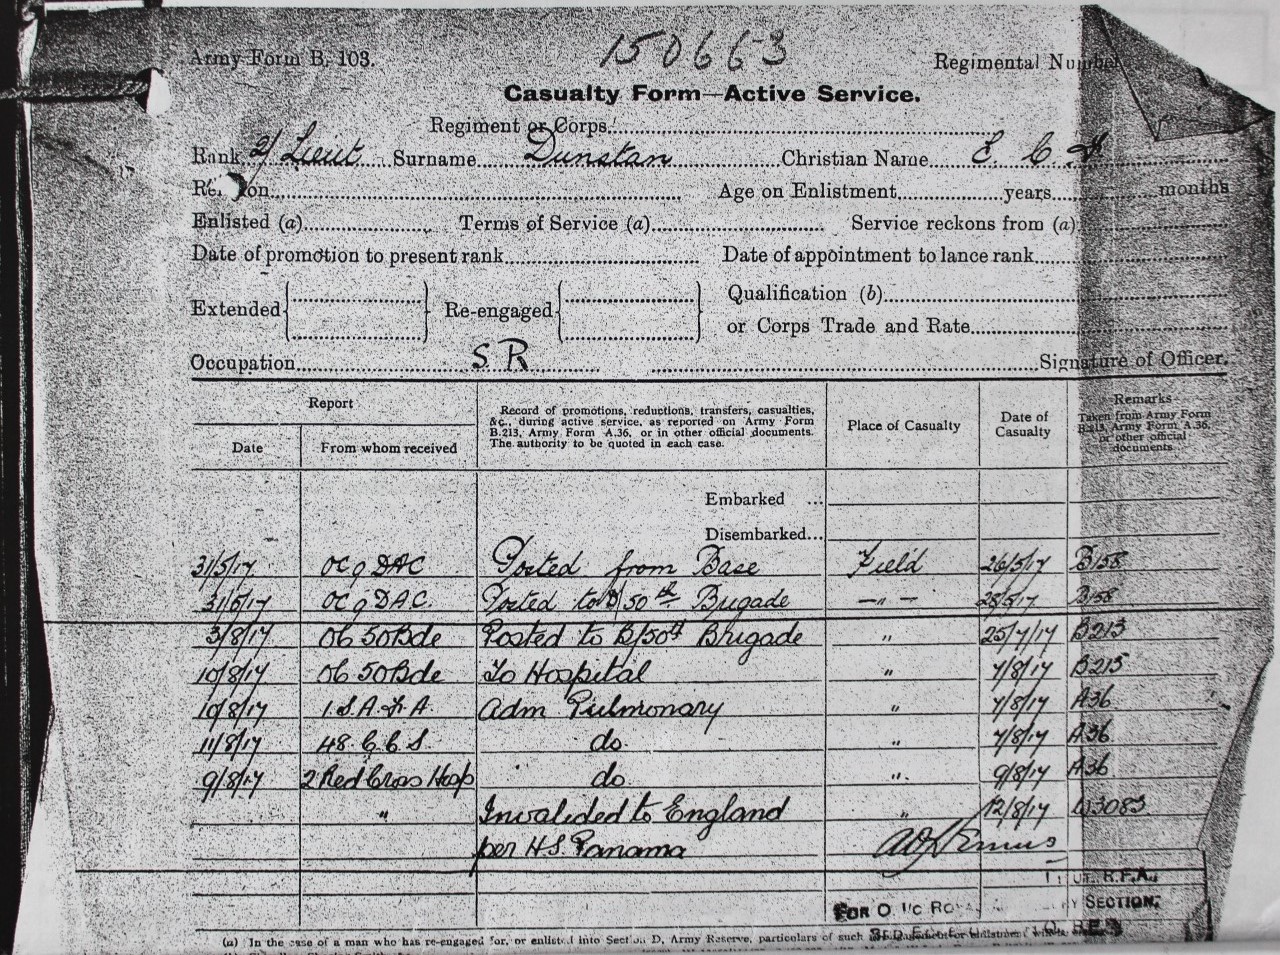 Army Form B. 103. 150663 Regimental Number
Casualty Form—Active Service.
Regiment or Corps
Rank 2/Lieut Surname Dunstan Christian Name E. C.
Age on Enlistment years months
Enlisted (a) Terms of Service (a) Service reckons from (a)
Date of promotion to present rank Date of appointment to lance rank
Extended Re-engaged Qualification (b)
or Corps Trade and Rate
Occupation S R Signature of Officer.
Report
Date
From whom received
Record of promotions, reductions, transfers, casualties,
&c., during active service, as reported on Army Form
B.213, Army Form A.36, or in other official documents.
The authority to be quoted in each case.
Place of Casualty
Date of
Casualty
Remarks
Taken from Army Form
B.213, Army Form A.36,
or other official
documents
Embarked ...
Disembarked...
31/5/17 OC 9 DAC Posted from Base Field 26/5/17 B158
31/5/17 OC 9 D.A.C. Posted to D/50th Brigade —„— 28/5/17 B158
3/8/17 50 Bde Posted to B/50th Brigade „ 25/7/17 B213
10/8/17 50 Bde To Hospital „ 7/8/17 B213
10/8/17 1 S.A.F.A. Adm Pulmonary „ 7/8/17 A36
11/8/17 48 C.C.S. do. „ 7/8/17 A36
9/8/17 2 Red Cross Hosp do. „ 9/8/17 A36
„ Invalided to England „ 12/8/17 W3083
per H.S. Panama
R.F.A.
FOR O. i/c SECTION,
(a) In the case of a man who has re-engaged for, or enlisted into Section D, Army Reserve, particulars of such